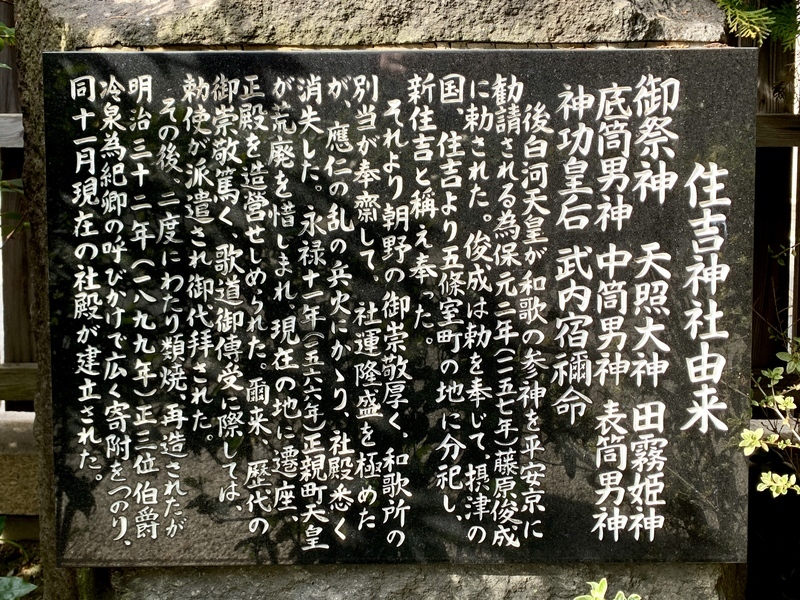 住吉神社由来
御祭神 天照大神 田霧姫神
底筒男神 中筒男神 表筒男神
神功皇后 武内宿禰命
後白河天皇が和歌の参神を平安京に
勧請される為保元二年(一一五七年)藤原俊成
に勅された。俊成は勅を奉じて、摂津の
国、住吉より五條室町の地に分祀し、
新住吉と稱え奉った。
それより朝野の御崇敬厚く、和歌所の
別当が奉齋して。社運隆盛を極めた
が、應仁の乱の兵火にかゝり、社殿悉く
消失した。永禄十一年(一五六六年)正親町天皇
が荒廃を惜しまれ、現在の地に遷座、
正殿を造営せしめられた。爾来、歴代の
御崇敬篤く、歌道御傳受に際しては、
勅使が派遣され御代拝された。
その後、二度にわたり類焼、再造されたが
明治三十二年(一八九九年)正三位伯爵
冷泉為紀卿の呼びかけで広く寄附をつのり、
同十一月現在の社殿が建立された。